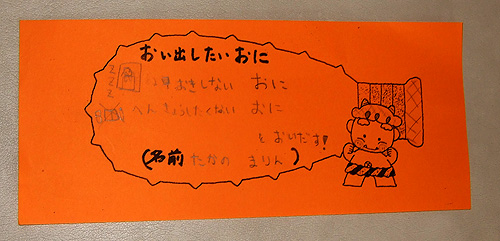 おい出したいおに
早おきしない おに
べんきょうしたくない おに
をおいだす!
(名前 たかの まりん)